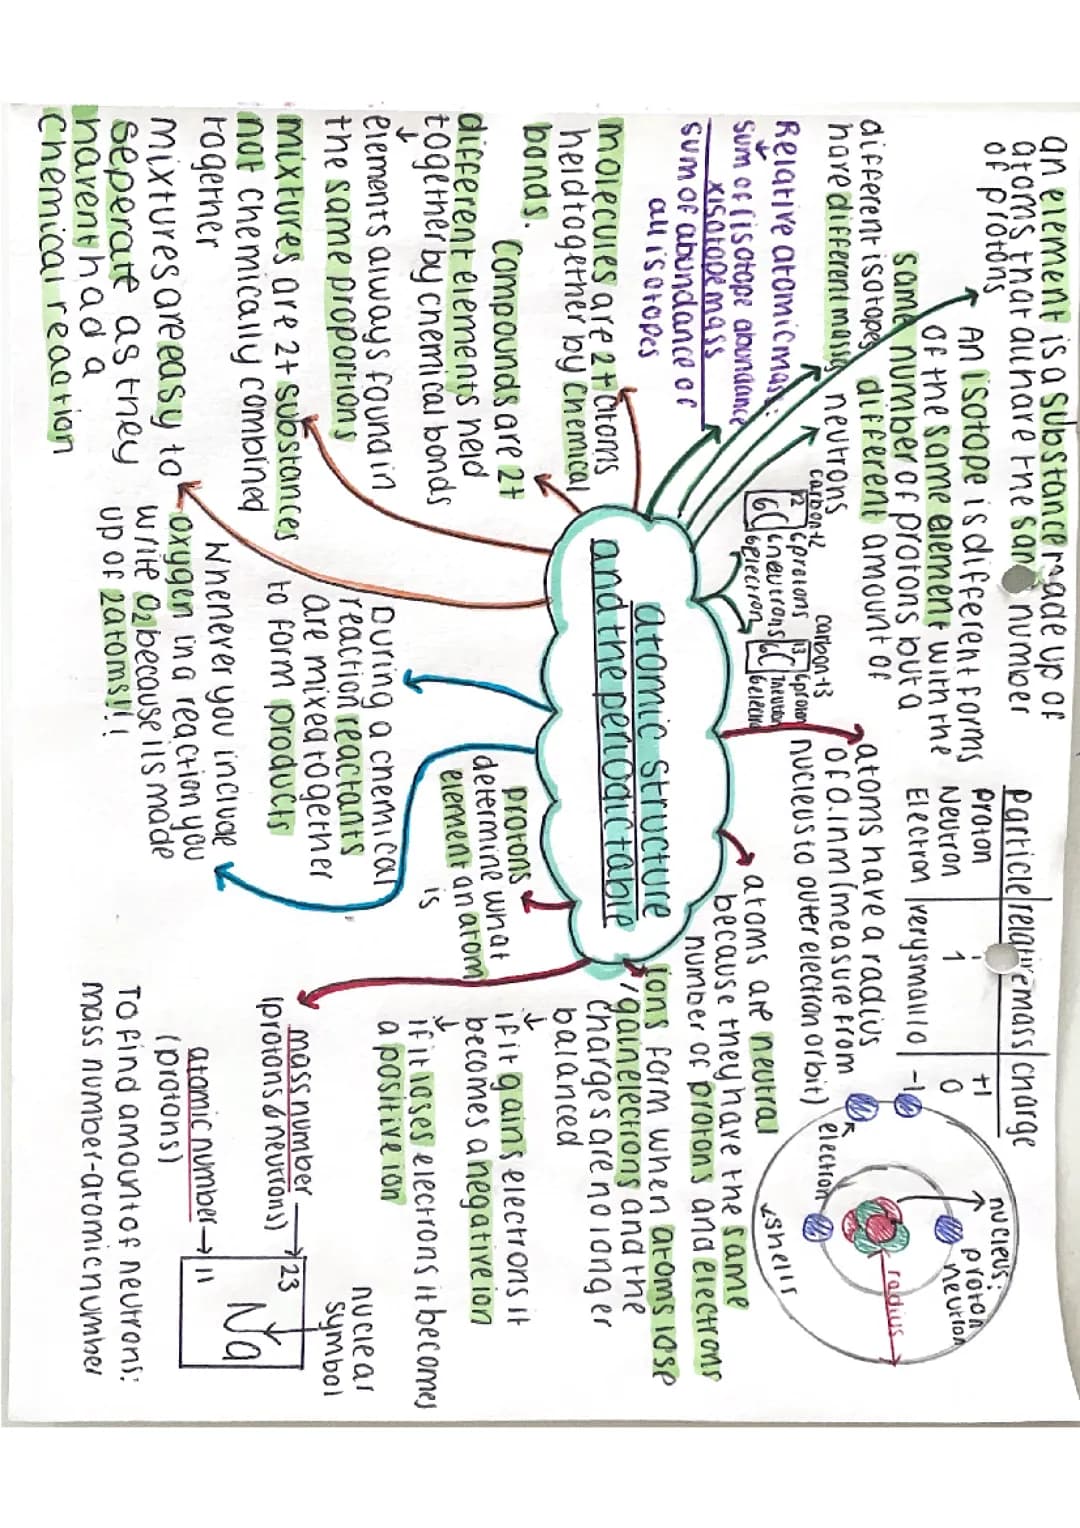 an element is a substance made up of
atoms that all have the same number
of protons
An isotope is different forms
of the same element with the
same number of protons but a
different amount of
neutrons
different isotopes
have different mass
Relative atomic mass:
sum of (isotope abundance
x isotope mass
sum of abundance of
all isotopes
carbon-12
12
6C
6 protons
6 neutrons
6 electron
carbon-13
13
6C
6 proton
7 neutron
6 electro
molecules are 2+ atoms
held together by chemical
bonds.
Compounds are 2+
different elements held
together by chemical bonds
elements always found in
the same proportions
mixtures are 2+ substances
not chemically combined
together
mixtures are easy to
seperate as they
havent had a
chemical reaction
atomic structure
and the periodic table
During a chemical
reaction reactants
are mixed together
to form products
Whenever you include
oxygen in a reaction you
write O2 because its made
up of 2 atoms!!!
particle relative mass charge
proton 1 +1
Neutron 1 0
Electron very small 0 -1
atoms have a radius
of 0.1nm (measure from
nucleus to outer electron orbit)
nucleus:
proton
neutron
electron
radius
shells
atoms are neutral
because they have the same
number of protons and electrons
ions form when atoms lose
/gain electrons and the
charges are no longer
balanced
if it gains electrons it
becomes a negative ion
if it loses electrons it becomes
a positive ion
protons
determine what
element an atom
is
mass number
(protons & neutrons)
atomic number
(protons)
23
11
Na
nuclear
symbol
To find amount of neutrons:
mass number-atomic number